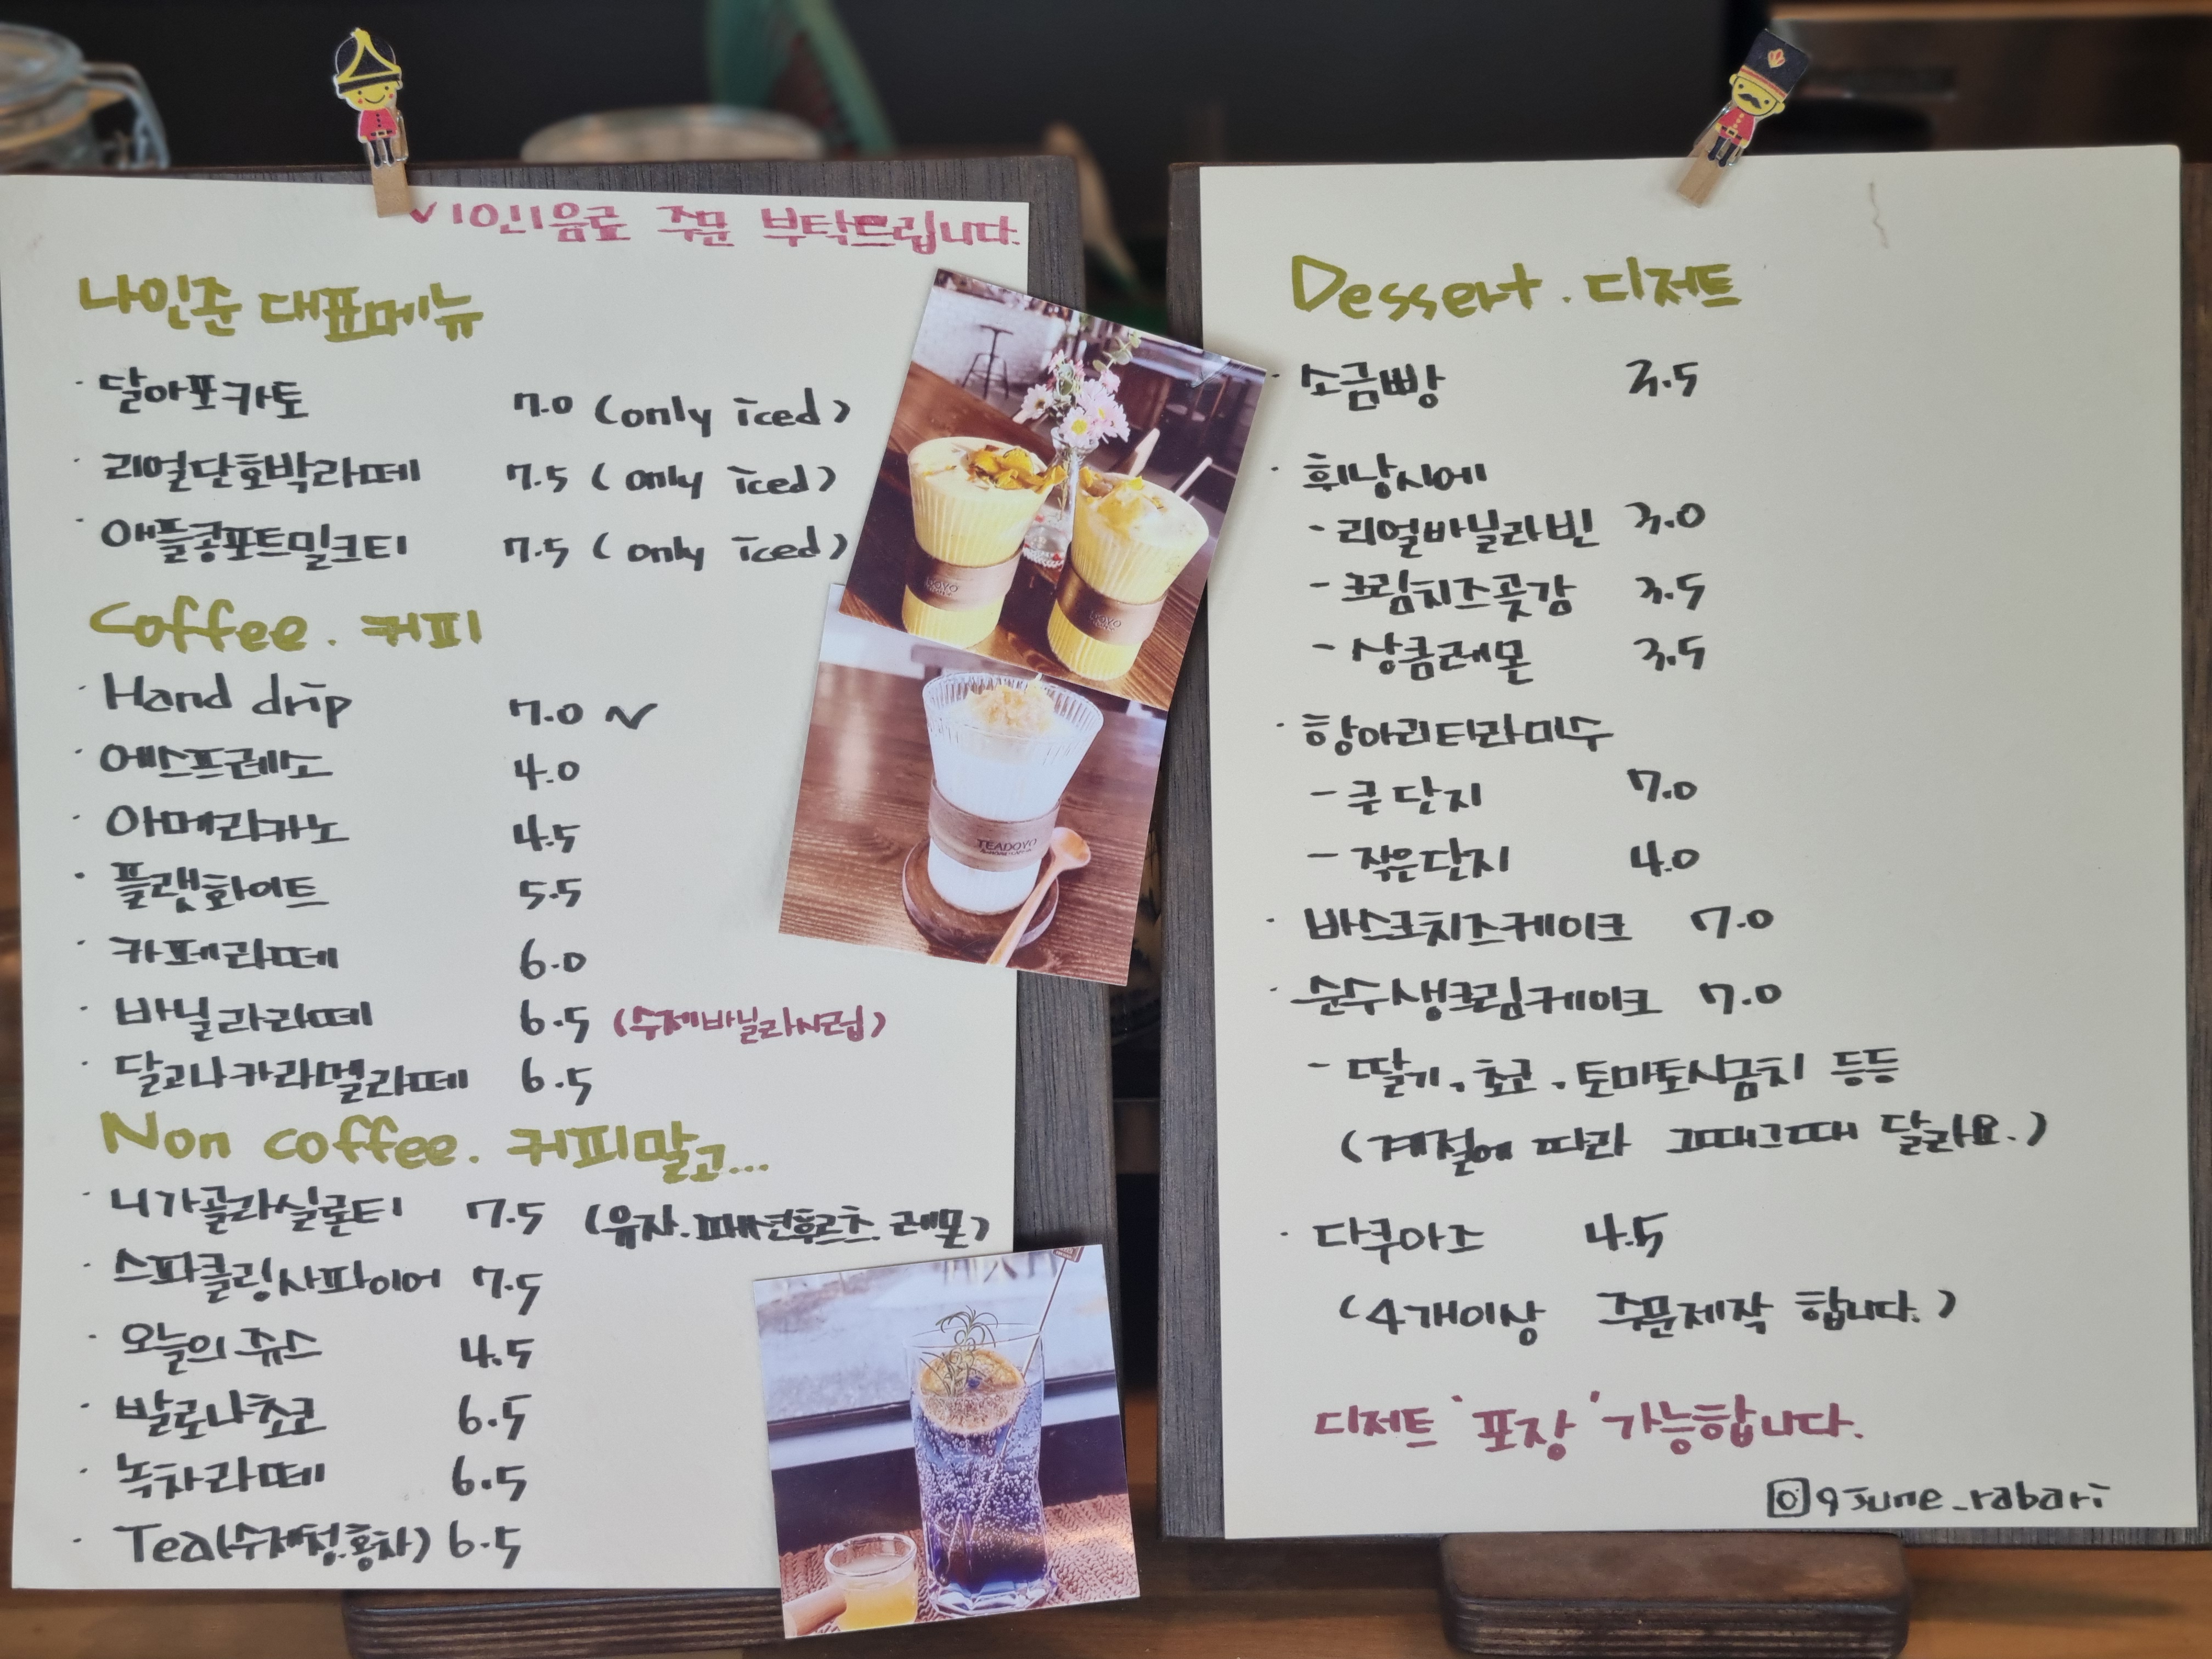 ✓1인1음료 주문 부탁드립니다.
나인준 대표메뉴
· 달아포카토 7.0 (only iced)
· 리얼단호박라떼 7.5 (only iced)
· 애플콩포트밀크티 7.5 (only iced)
Coffee. 커피
· Hand drip 7.0 ~
· 에스프레소 4.0
· 아메리카노 4.5
· 플랫화이트 5.5
· 카페라떼 6.0
· 바닐라라떼 6.5 (수제바닐라시럽)
· 달고나카라멜라떼 6.5
Non coffee. 커피말고...
· 니가골라실론티 7.5 (유자.패션후르츠.레몬)
· 스파클링사파이어 7.5
· 오늘의 쥬스 4.5
· 발로나쵸코 6.5
· 녹차라떼 6.5
· Tea(수제청.홍차) 6.5
TEADOYO
Dessert. 디저트
· 소금빵 3.5
· 휘낭시에
- 리얼바닐라빈 3.0
- 크림치즈곶감 3.5
- 상큼레몬 3.5
· 항아리티라미수
- 큰단지 7.0
- 작은단지 4.0
· 바스크치즈케이크 7.0
· 순수생크림케이크 7.0
- 딸기, 쵸코, 토마토시금치 등등
(계절에 따라 그때그때 달라요.)
· 다쿠아조 4.5
(4개이상 주문제작 합니다.)
디저트 '포장' 가능합니다.
9june_rabari